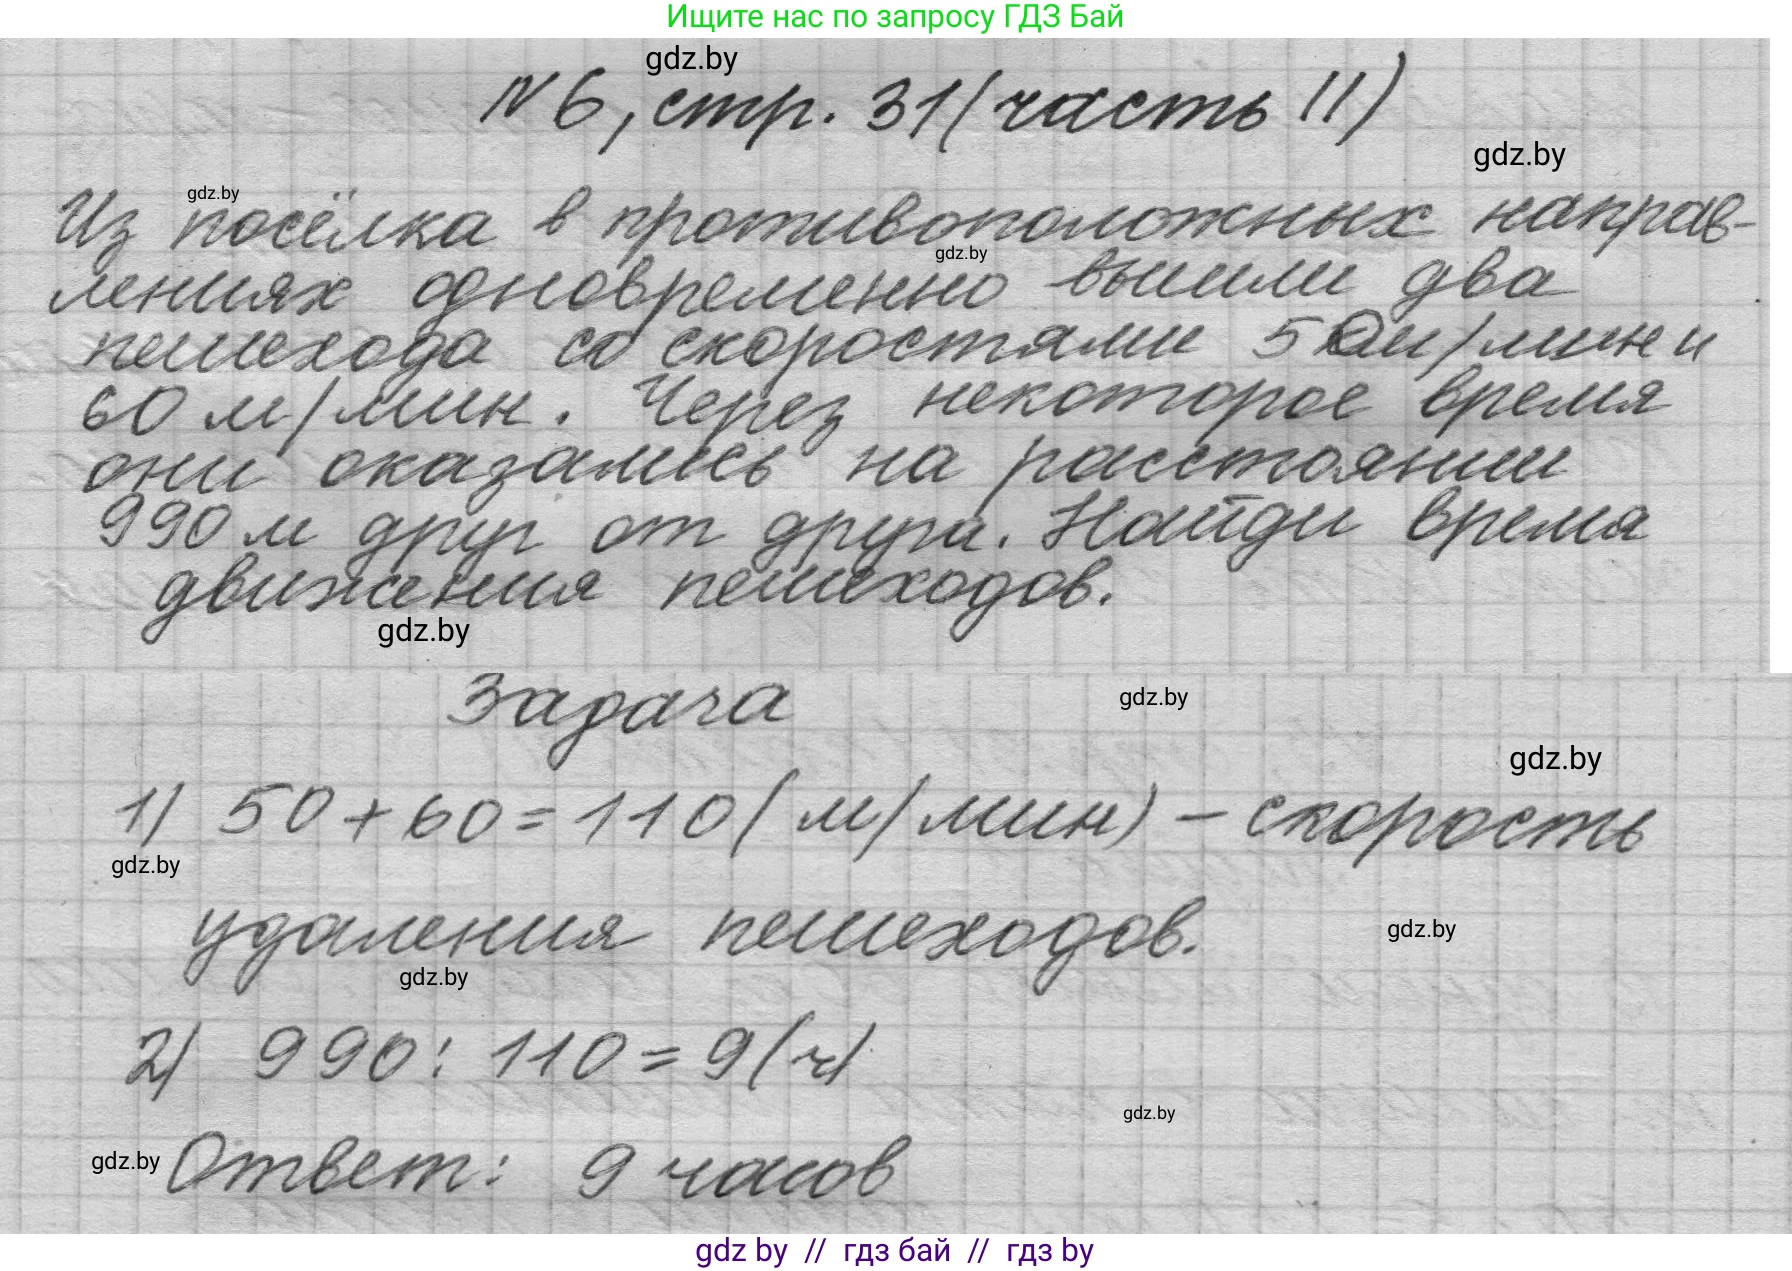 Ищите нас по запросу ГДЗ Бай
gdz.by
N 6, стр. 31 (часть II)
gdz.by
gdz.by
Из посёлка в противоположных направ-
gdz.by
лениях одновременно вышли два
пешехода со скоростями 50 м/мин и
60 м/мин. Через некоторое время
они оказались на расстоянии
990 м друг от друга. Найди время
движения пешеходов.
gdz.by
Задача
gdz.by
gdz.by
1) 50 + 60 = 110 (м/мин) - скорость
gdz.by
удаления пешеходов.
gdz.by
gdz.by
2) 990 : 110 = 9 (ч)
gdz.by
gdz.by
Ответ: 9 часов
gdz by // гдз бай // гдз by